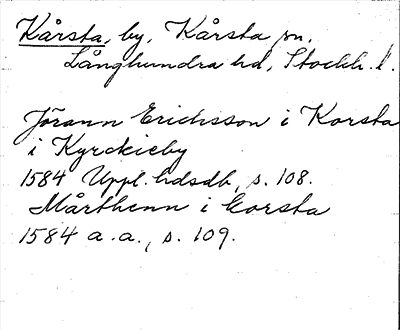 Kårsta, by, Kårsta sn.
Långhundra hd, Stockh. l.
Jörann Erichsson i Korsta
i Kyrckieby
1584 Uppl. hdsdb, s. 108.
Mårthenn i Corsta
1584 a.a., s. 109.